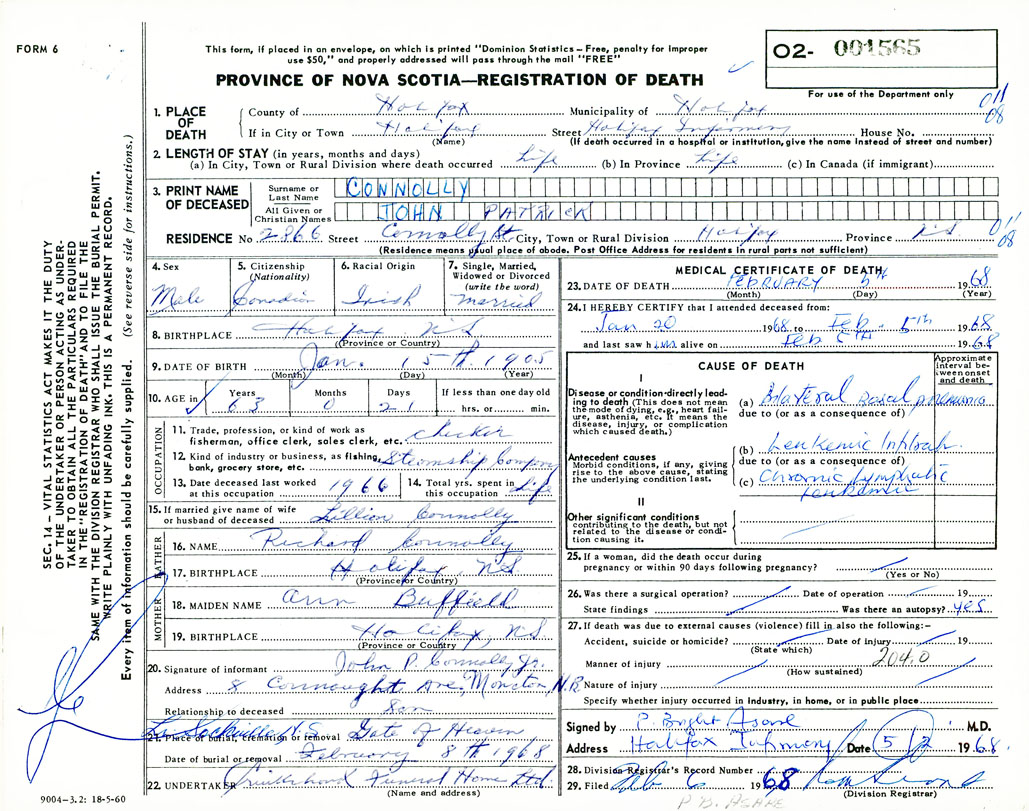 FORM 6
This form, if placed in an envelope, on which is printed "Dominion Statistics – Free, penalty for improper
use $50," and properly addressed will pass through the mail "FREE"
PROVINCE OF NOVA SCOTIA—REGISTRATION OF DEATH
O2- 001565
For use of the Department only
011
08
1. PLACE OF DEATH County of Halifax Municipality of Halifax
If in City or Town Halifax Street Halifax Infirmary House No.
(Name) (If death occurred in a hospital or institution, give the name instead of street and number)
2. LENGTH OF STAY (in years, months and days)
(a) In City, Town or Rural Division where death occurred Life (b) In Province Life (c) In Canada (if immigrant)
3. PRINT NAME OF DECEASED Surname or Last Name CONNOLLY
All Given or Christian Names JOHN PATRICK
RESIDENCE No. 2866 Street Connolly St City, Town or Rural Division Halifax Province N.S. 011
08
(Residence means usual place of abode. Post Office Address for residents in rural parts not sufficient)
4. Sex Male
5. Citizenship (Nationality) Canadian
6. Racial Origin Irish
7. Single, Married, Widowed or Divorced (write the word) Married
8. BIRTHPLACE Halifax N S
(Province or Country)
9. DATE OF BIRTH Jan. 15th. 1905
(Month) (Day) (Year)
10. AGE in Years 63 Months 0 Days 21 If less than one day old hrs. or min.
OCCUPATION
11. Trade, profession, or kind of work as
fisherman, office clerk, sales clerk, etc. checker
12. Kind of industry or business, as fishing,
bank, grocery store, etc. Steamship Company
13. Date deceased last worked
at this occupation 1966
14. Total yrs. spent in
this occupation Life
15. If married give name of wife
or husband of deceased Lillian Connolly
FATHER
16. NAME Richard Connolly
17. BIRTHPLACE Halifax, NS
(Province or Country)
MOTHER
18. MAIDEN NAME Ann Buffield
19. BIRTHPLACE Halifax, NS
(Province or Country
20. Signature of informant John P. Connolly Jr.
Address 8 Connaught Ave, Moncton, N.B.
Relationship to deceased Son
21. Place of burial, cremation or removal Lr Sackville N.S. Gate of Heaven
Date of burial or removal February 8th 1968
22. UNDERTAKER Cruikshank Funeral Home Ltd.
(Name and address)
MEDICAL CERTIFICATE OF DEATH
23. DATE OF DEATH FEBRUARY 5th 1968
(Month) (Day) (Year)
24. I HEREBY CERTIFY that I attended deceased from:
Jan 20 1968 to Feb - 5th 1968
and last saw him alive on Feb 5th 1968
CAUSE OF DEATH
Approximate interval between onset and death
I
Disease or condition directly leading to death (This does not mean the mode of dying, e.g., heart failure, asthenia, etc. It means the disease, injury, or complication which caused death.)
(a) Bilateral Basal pneumonia
due to (or as a consequence of)
Antecedent causes
Morbid conditions, if any, giving rise to the above cause, stating the underlying condition last.
(b) Leukemic Infiltrate
due to (or as a consequence of)
(c) Chronic Lymphatic
Leukemia
II
Other significant conditions
contributing to the death, but not related to the disease or condition causing it.
25. If a woman, did the death occur during
pregnancy or within 90 days following pregnancy?
(Yes or No)
26. Was there a surgical operation? Date of operation 19
State findings Was there an autopsy? yes
27. If death was due to external causes (violence) fill in also the following:-
Accident, suicide or homicide? Date of injury 19
(State which) 204.0
Manner of injury
(How sustained)
Nature of injury
Specify whether injury occurred in industry, in home, or in public place
Signed by P. Bright Asare M.D.
Address Halifax Infirmary Date 5/2 1968.
28. Division Registrar's Record Number
29. Filed Feb 6 1968
(Division Registrar)
P B. ASARE
SEC. 14 – VITAL STATISTICS ACT MAKES IT THE DUTY
OF THE UNDERTAKER OR PERSON ACTING AS UNDER-
TAKER TO OBTAIN ALL THE PARTICULARS REQUIRED
IN THE "REGISTRATION OF DEATH" AND TO FILE THE
SAME WITH THE DIVISION REGISTRAR WHO SHALL ISSUE THE BURIAL PERMIT.
WRITE PLAINLY WITH UNFADING INK. THIS IS A PERMANENT RECORD.
Every item of information should be carefully supplied. (See reverse side for instructions.)
9004–3.2: 18-5-60